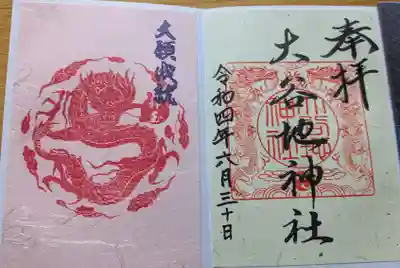 大願成就
奉拝
大谷地神社
令和四年六月三十日